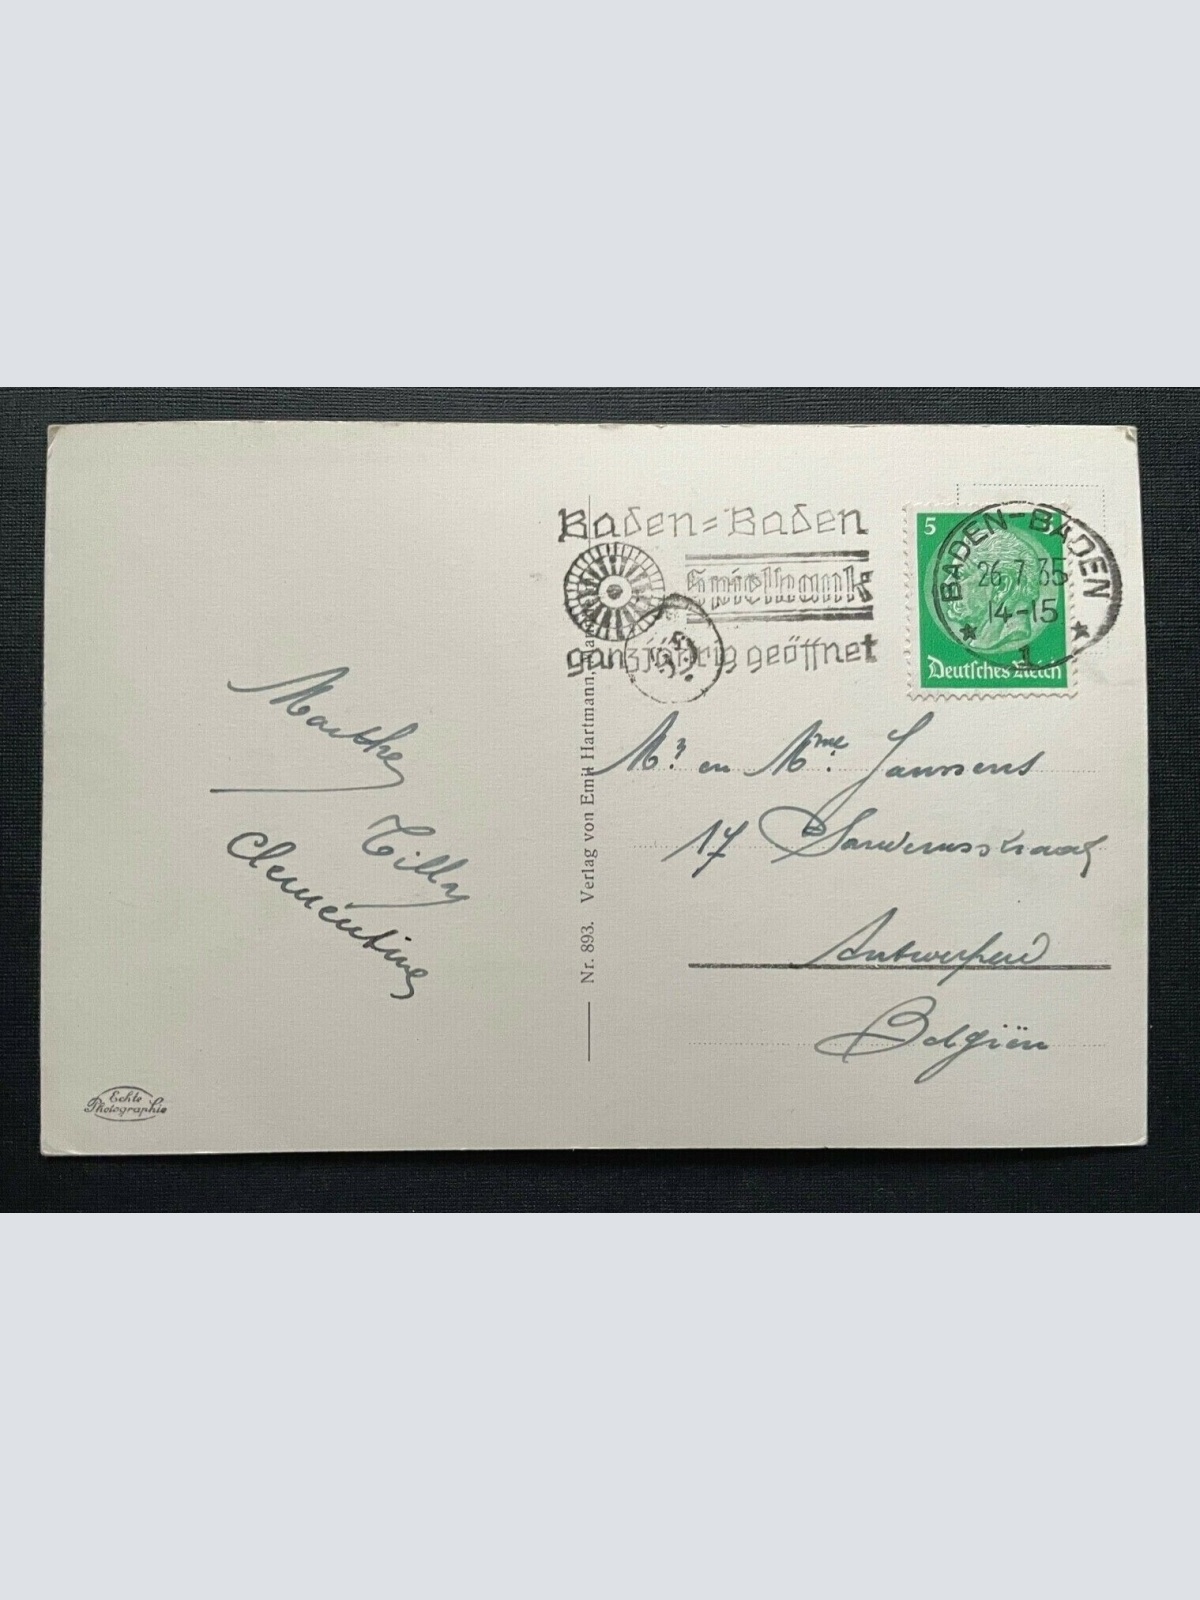 Baden=Baden
Spielbank
ganzjährig geöffnet
5
Deutsches Reich
BADEN-BADEN
26.7.35
14-15
1
Marthe
Tilly
Clementine
Mr. en Mme. Janssens
17
Antwerpen
Belgiën
Nr. 893. Verlag von Emil Hartmann,
Echte
Photographie